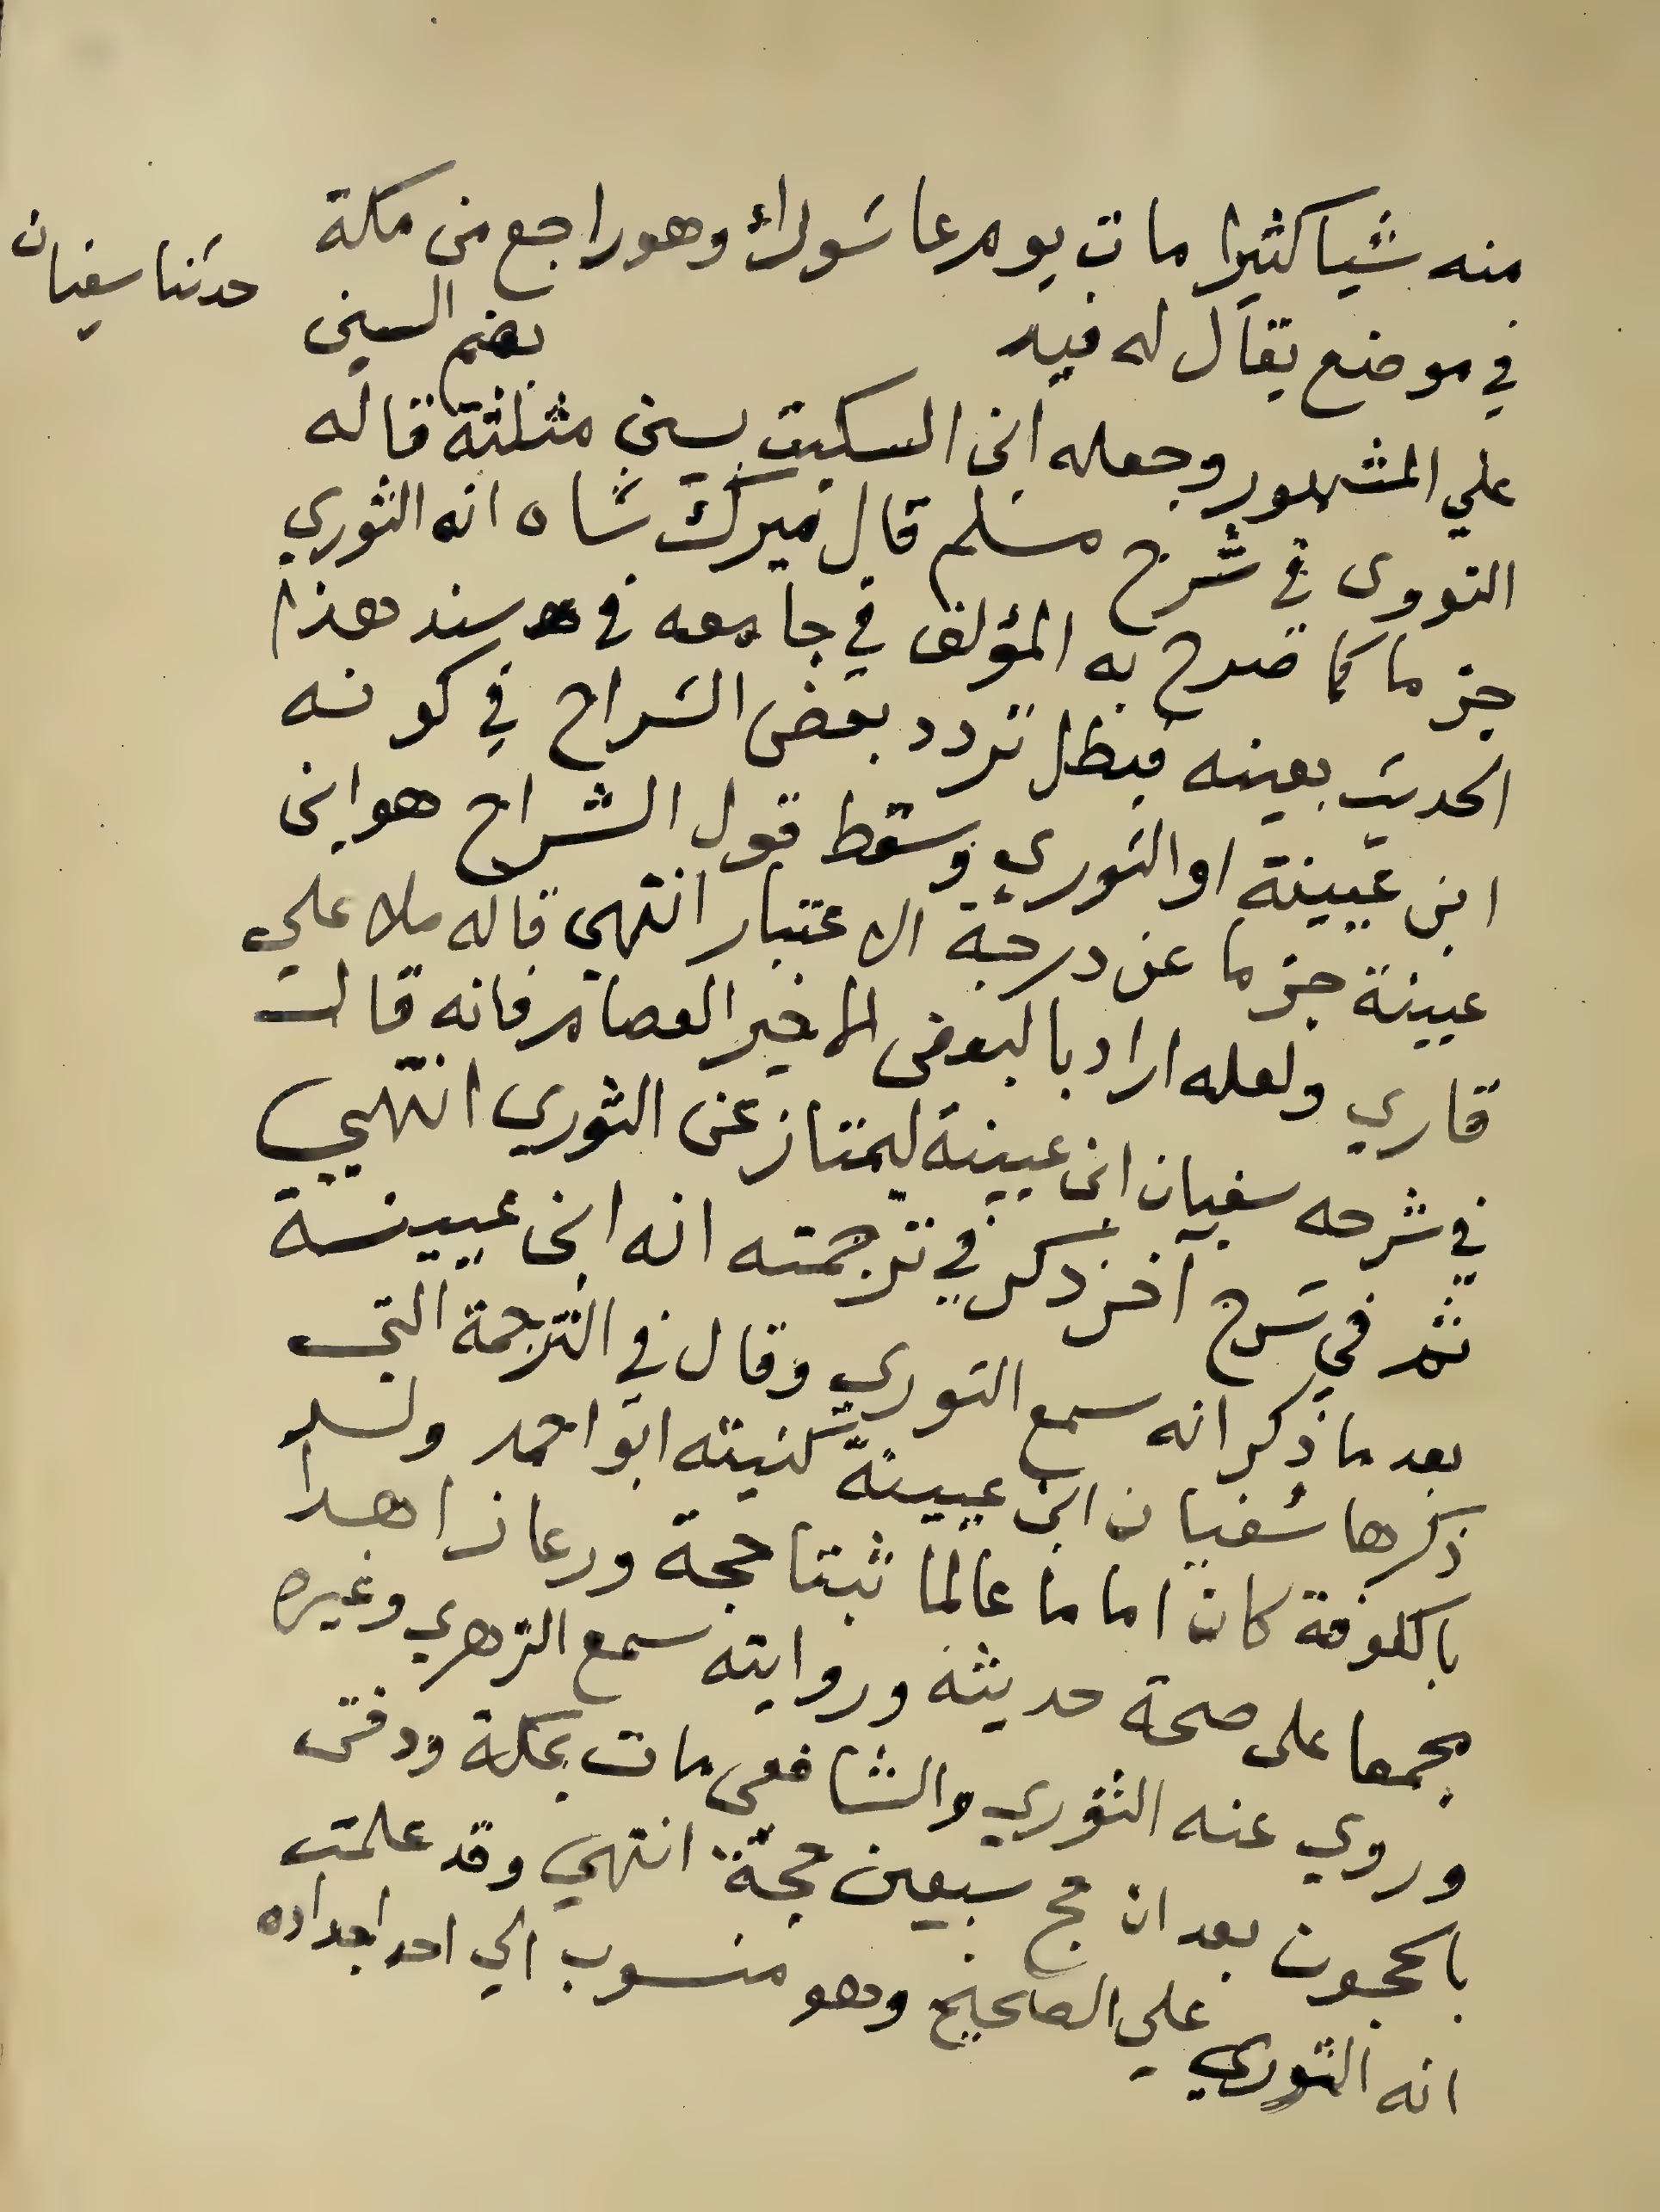 منه شيا كثيرا مات يوم عاشوراء وهو راجع من مكة
في موضع يقال له فيد بضم السين
حدثنا سفيان
علي المشهور وجعله ابن السكيت بسين مثلثة قاله
النووى في شرح مسلم قال ميرك شاه انه الثوري
جزما كما صرح به المؤلف في جامعه في سند هذا
الحديث بعينه فبطل تردد بعض الشراح في كونه
ابن عيينة او الثوري وسقط قول الشراح هو ابن
عيينة جزما عن درجة الاعتبار انتهي قاله ملا علي
قاري ولعله اراد بالبعض الاخير العصام فانه قال
في شرحه سفيان ابن عيينة ليمتاز عن الثوري انتهي
ثم في شرح آخر ذكر في ترجمته انه ابن عيينة
بعد ما ذكر انه سمع الثوري وقال في الترجمة التي
ذكرها سفيان ابن عيينة كنيته ابو احمد ولد
بالكوفة كان اماما عالما ثبتا حجة ورعا زاهدا
مجمعا على صحة حديثه وروايته سمع الزهري وغيره
وروي عنه الثوري والشافعى مات بمكة ودفن
بالحجون بعد ان حج سبعين حجة انتهي وقد علمت
انه الثوري علي الصحيح وهو منسوب الي احد اجداده